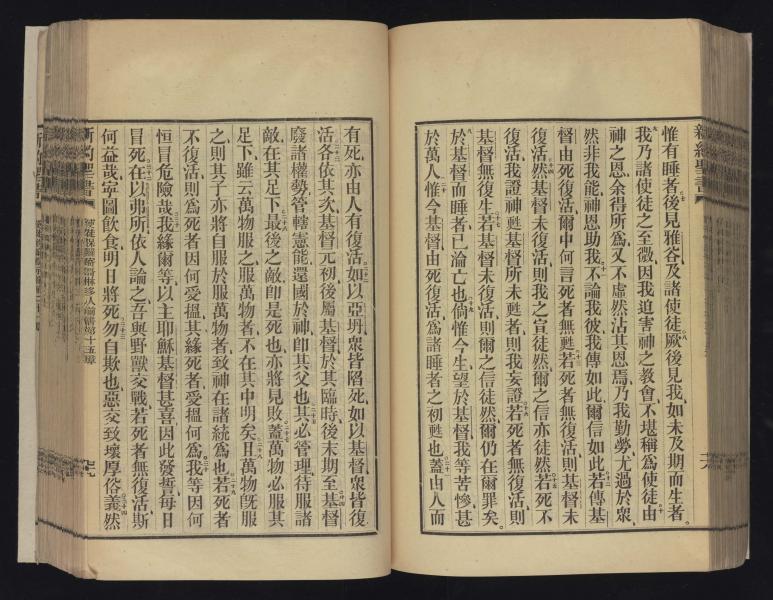 惟有睡者後見雅谷及諸使徒厥後見我如未及期而生者
我乃諸使徒之至微因我迫害神之教會不堪稱爲使徒由
神之恩余得所爲又不虛然沽其恩焉乃我勤勞尤過於衆
然非我能神恩助我不論我彼我傳如此爾信如此若傳基
督由死復活爾中何言死者無甦若死者無復活則基督未
復活然基督未復活則我之宣徒然爾之信亦徒然若死不
復活我證神甦基督所未甦者則我妄證若死者無復活則
基督無復生若基督未復活則爾之信徒然爾仍在爾罪矣
於基督而睡者已淪亡也倘惟今生望於基督我等苦慘甚
於萬人惟今基督由死復活爲諸睡者之初甦也蓋由人而
有死亦由人有復活如以亞坍衆皆陷死如以基督衆皆復
活各依其次基督元初後屬基督於其臨時後末期至基督
廢諸權勢管轄憲能還國於神卽其父也其必管理待服諸
敵在其足下最後之敵卽是死也亦將見敗蓋萬物必服其
足下雖云萬物服之服萬物者不在其中明矣且萬物旣服
之則其子亦將自服於服萬物者致神在諸統爲也若死者
不復活則爲死者因何受搵其緣死者愛搵何爲我等因何
恒冒危險哉我緣爾等以主耶穌基督甚喜因此發誓每日
冒死在以弗所依人論之吾與野獸交戰若死者無復活斯
何益哉寧圖飲食明日將死勿自欺也惡交致壞厚俗義然
新約聖書
新約聖書